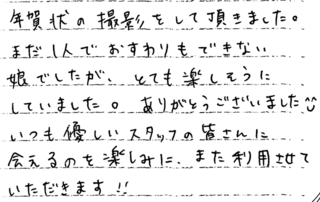 年賀状の撮影をして頂きました。
まだ1人でおすわりもできない
娘でしたが、とても楽しそうに
していました。ありがとうございました
いつも優しいスタッフの皆さんに
会えるのを楽しみに、また利用させて
いただきます!!